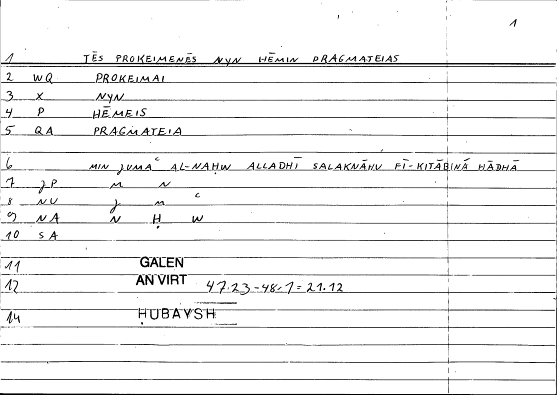 1
1 TĒS PROKEIMENĒS NYN HĒMIN PRAGMATEIAS
2 WQ PROKEIMAI
3 X NYN
4 P HĒMEIS
5 QA PRAGMATEIA
6 MIN ʒUMAᶜ AL-NAḤW ALLADHĪ SALAKNĀHU FĪ-KITĀBINĀ HĀDHĀ
7 ʒP M N
8 NU ʒ M ᶜ
9 NA N Ḥ W
10 SA
11 GALEN
12 AN VIRT 47.23-48.1=21.12
14 ḤUBAYSH